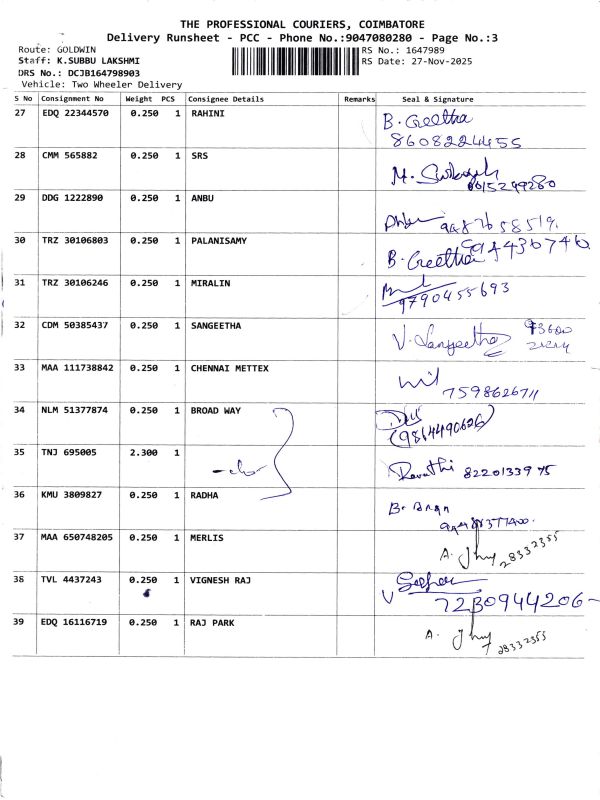 THE PROFESSIONAL COURIERS, COIMBATORE
Delivery Runsheet - PCC - Phone No.:9047080280 - Page No.:3
Route: GOLDWIN
RS No.: 1647989
Staff: K.SUBBU LAKSHMI
RS Date: 27-Nov-2025
DRS No.: DCJB164798903
Vehicle: Two Wheeler Delivery
S No Consignment No Weight PCS Consignee Details Remarks Seal & Signature
27 EDQ 22344570 0.250 1 RAHINI B. Geetha
8608224455
28 CMM 565882 0.250 1 SRS M.
29 DDG 1222890 0.250 1 ANBU
30 TRZ 30106803 0.250 1 PALANISAMY
B. Geetha
31 TRZ 30106246 0.250 1 MIRALIN
9790455693
32 CDM 50385437 0.250 1 SANGEETHA V. Sangeetha
33 MAA 111738842 0.250 1 CHENNAI METTEX
7598626711
34 NLM 51377874 0.250 1 BROAD WAY
(9814490626)
35 TNJ 695005 2.300 1 Revathi 8220133975
36 KMU 3809827 0.250 1 RADHA
37 MAA 650748205 0.250 1 MERLIS A.
28332355
38 TVL 4437243 0.250 1 VIGNESH RAJ
7280944206
39 EDQ 16116719 0.250 1 RAJ PARK A.
28332355